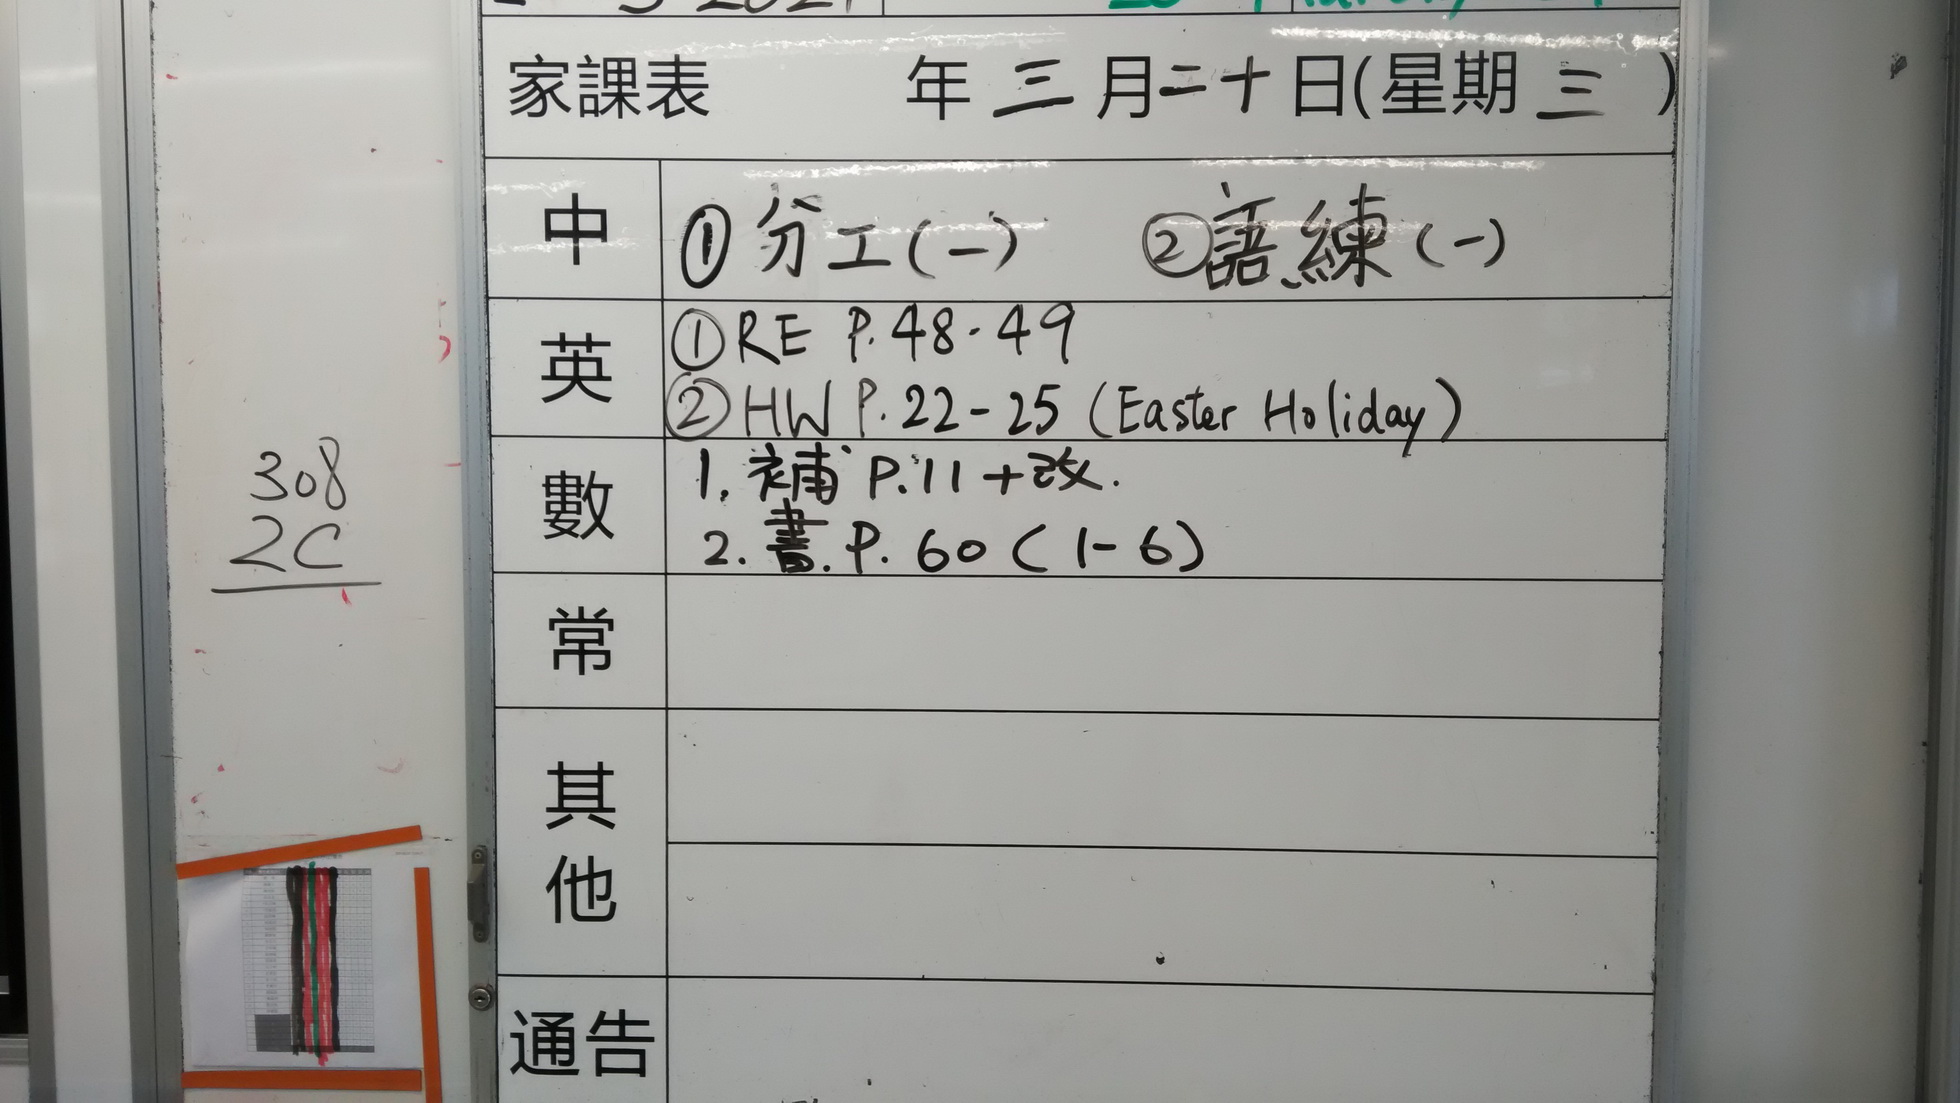 家課表 年 三 月 二十 日(星期 三 )
中 ①分工(一) ②語練(一)
英 ①RE P.48-49
②HW P.22-25 (Easter Holiday)
數 1. 補 P.11+改.
2. 書. P. 60 (1-6)
常
其他
通告
308
2C